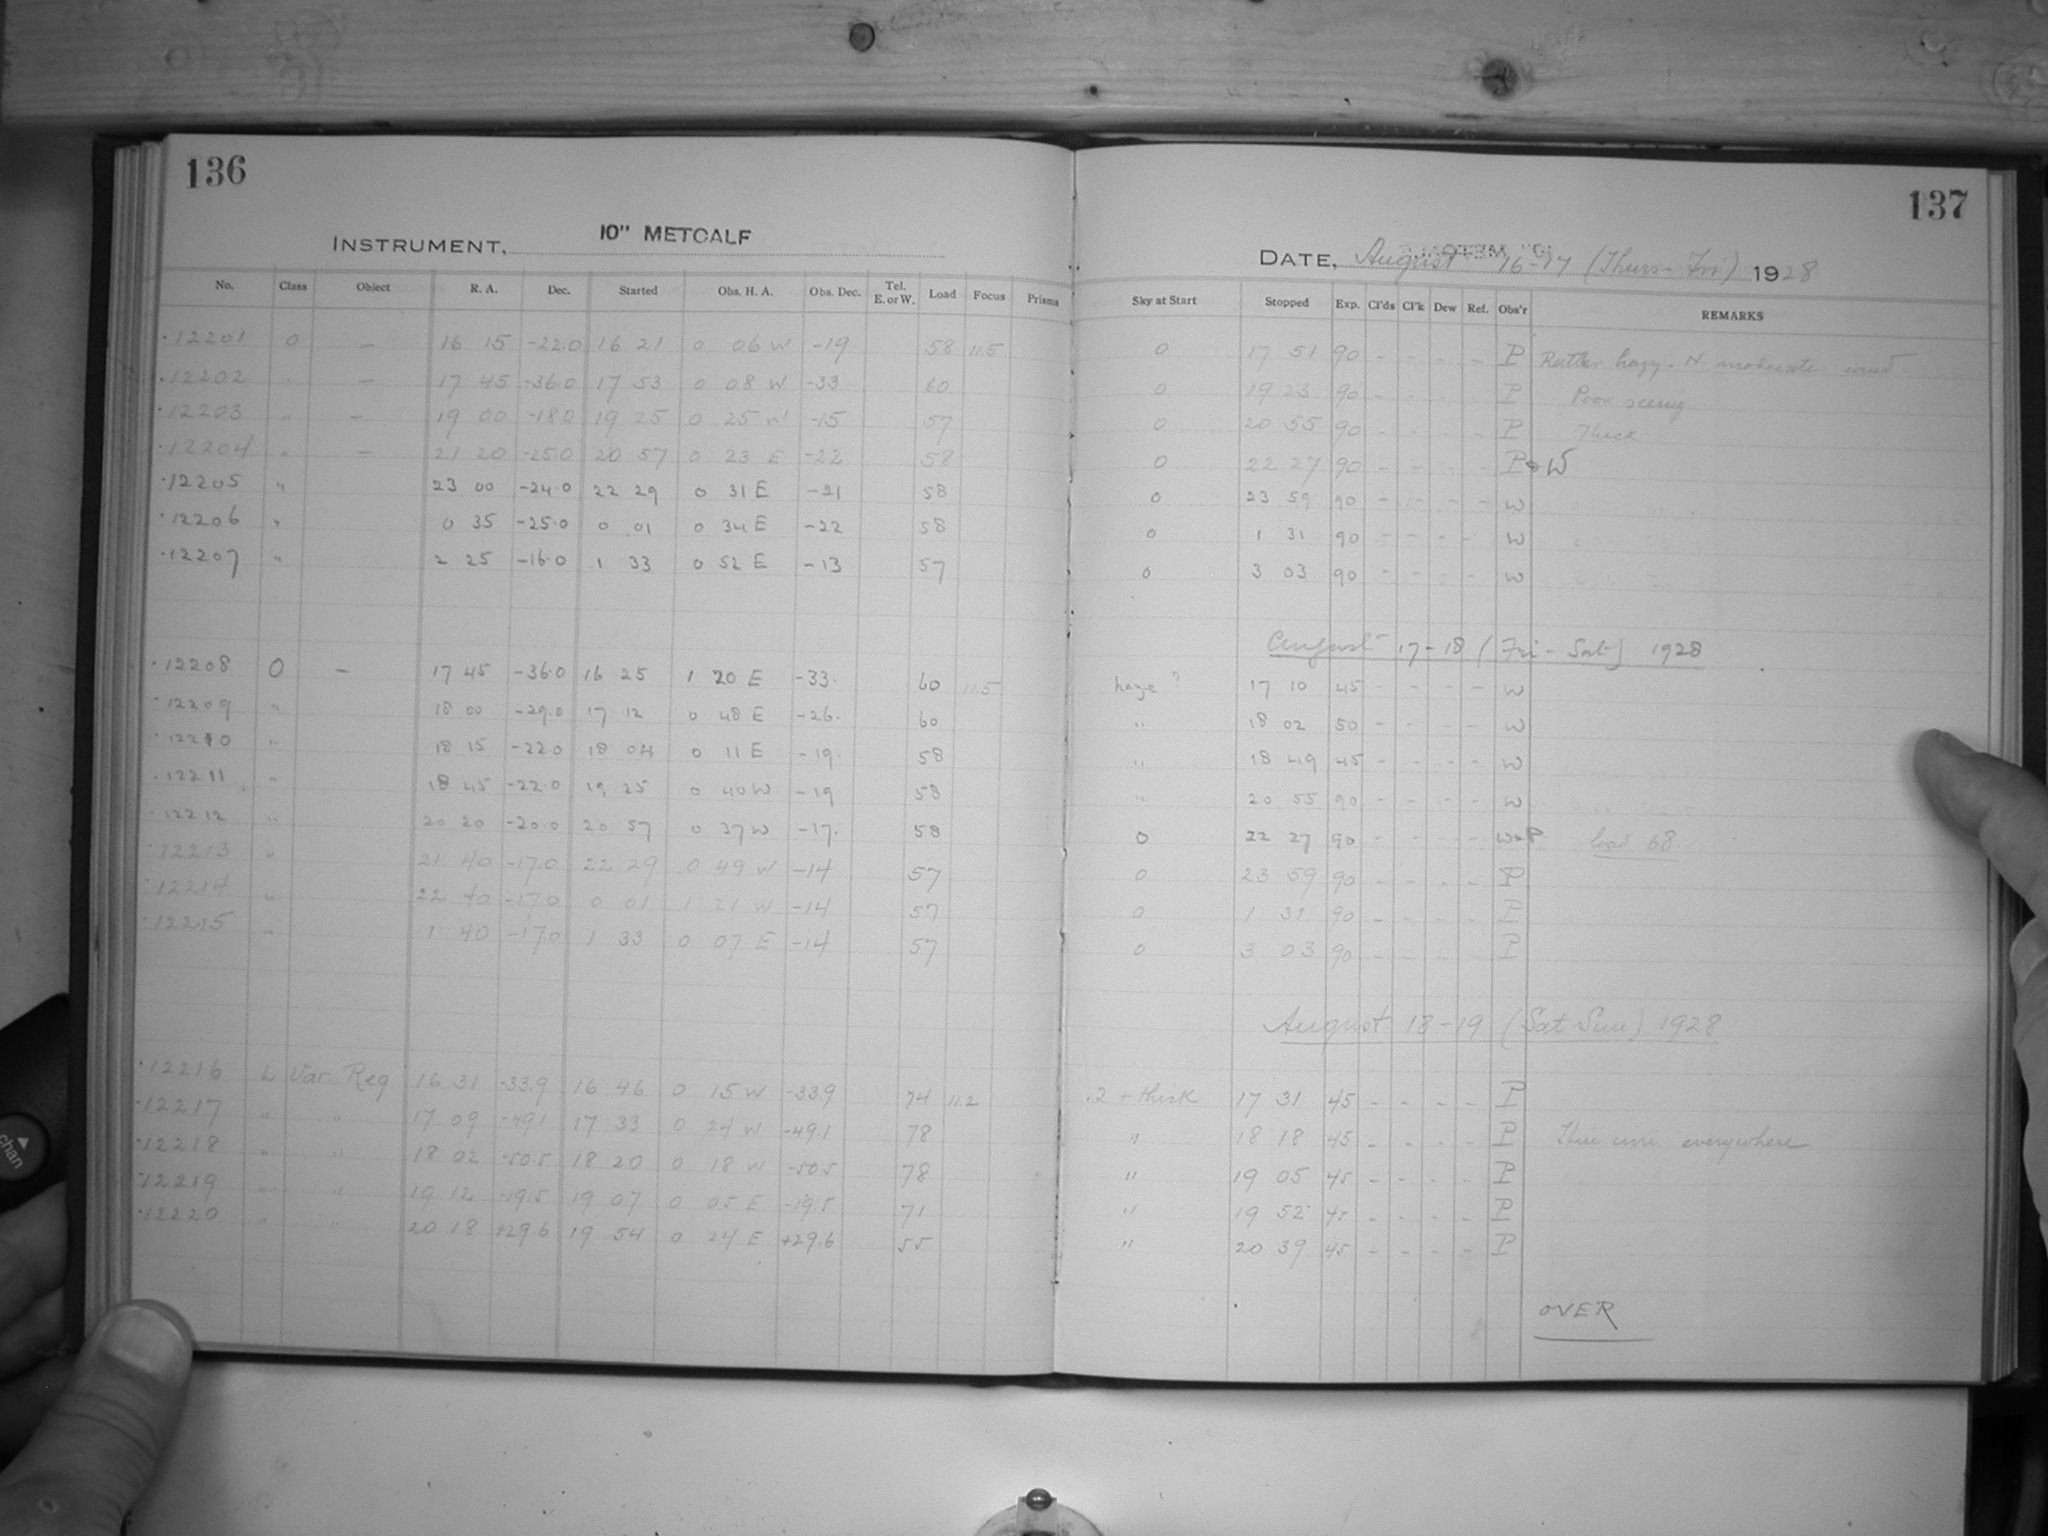 136
INSTRUMENT, 10" METCALF
No. Class Object R. A. Dec. Started Obs. H. A. Obs. Dec. Tel. E. or W. Load Focus Prisms
12201 O — 16 15 -22.0 16 21 0 06 W -19 58 11.5
12202 " — 17 45 -36.0 17 53 0 08 W -33 60
12203 " — 19 00 -18.0 19 25 0 25 W -15 57
12204 " — 21 20 -25.0 20 57 0 23 E -22 58
12205 " 23 00 -24.0 22 29 0 31 E -21 58
12206 " 0 35 -25.0 0 01 0 34 E -22 58
12207 " 2 25 -16.0 1 33 0 52 E -13 57
12208 O — 17 45 -36.0 16 25 1 20 E -33 60 11.5
12209 " 18 00 -29.0 17 12 0 48 E -26 60
12210 " 18 15 -22.0 18 04 0 11 E -19 58
12211 " 18 45 -22.0 19 25 0 40 W -19 58
12212 " 20 20 -20.0 20 57 0 37 W -17 58
12213 " 21 40 -17.0 22 29 0 49 W -14 57
12214 " 22 40 -17.0 0 01 1 21 W -14 57
12215 " 1 40 -17.0 1 33 0 07 E -14 57
12216 L Var. Reg 16 31 -33.9 16 46 0 15 W -33.9 74 11.2
12217 " " 17 09 -49.1 17 33 0 24 W -49.1 78
12218 " " 18 02 -50.5 18 20 0 18 W -50.5 78
12219 " " 19 12 -19.5 19 07 0 05 E -19.5 71
12220 " " 20 18 +29.6 19 54 0 24 E +29.6 55
137
DATE, August 16-17 (Thurs-Fri) 1928
Sky at Start Stopped Exp. Cl'ds Cl'k Dew Ref. Obs'r REMARKS
0 17 51 90 - - - - P Rather hazy. N moderate wind
0 19 23 90 - - - - P Poor seeing
0 20 55 90 - - - - P Thick
0 22 27 90 - - - - P & W
0 23 59 90 - - - - W
0 1 31 90 - - - - W
0 3 03 90 - - - - W
August 17-18 (Fri-Sat) 1928
haze? 17 10 45 - - - - W
" 18 02 50 - - - - W
" 18 49 45 - - - - W
" 20 55 90 - - - - W
0 22 27 90 - - - - W & P load 68
0 23 59 90 - - - - P
0 1 31 90 - - - - P
0 3 03 90 - - - - P
August 18-19 (Sat-Sun) 1928
.2 + thick 17 31 45 - - - - P
" 18 18 45 - - - - P everywhere
" 19 05 45 - - - - P
" 19 52 45 - - - - P
" 20 39 45 - - - - P
OVER